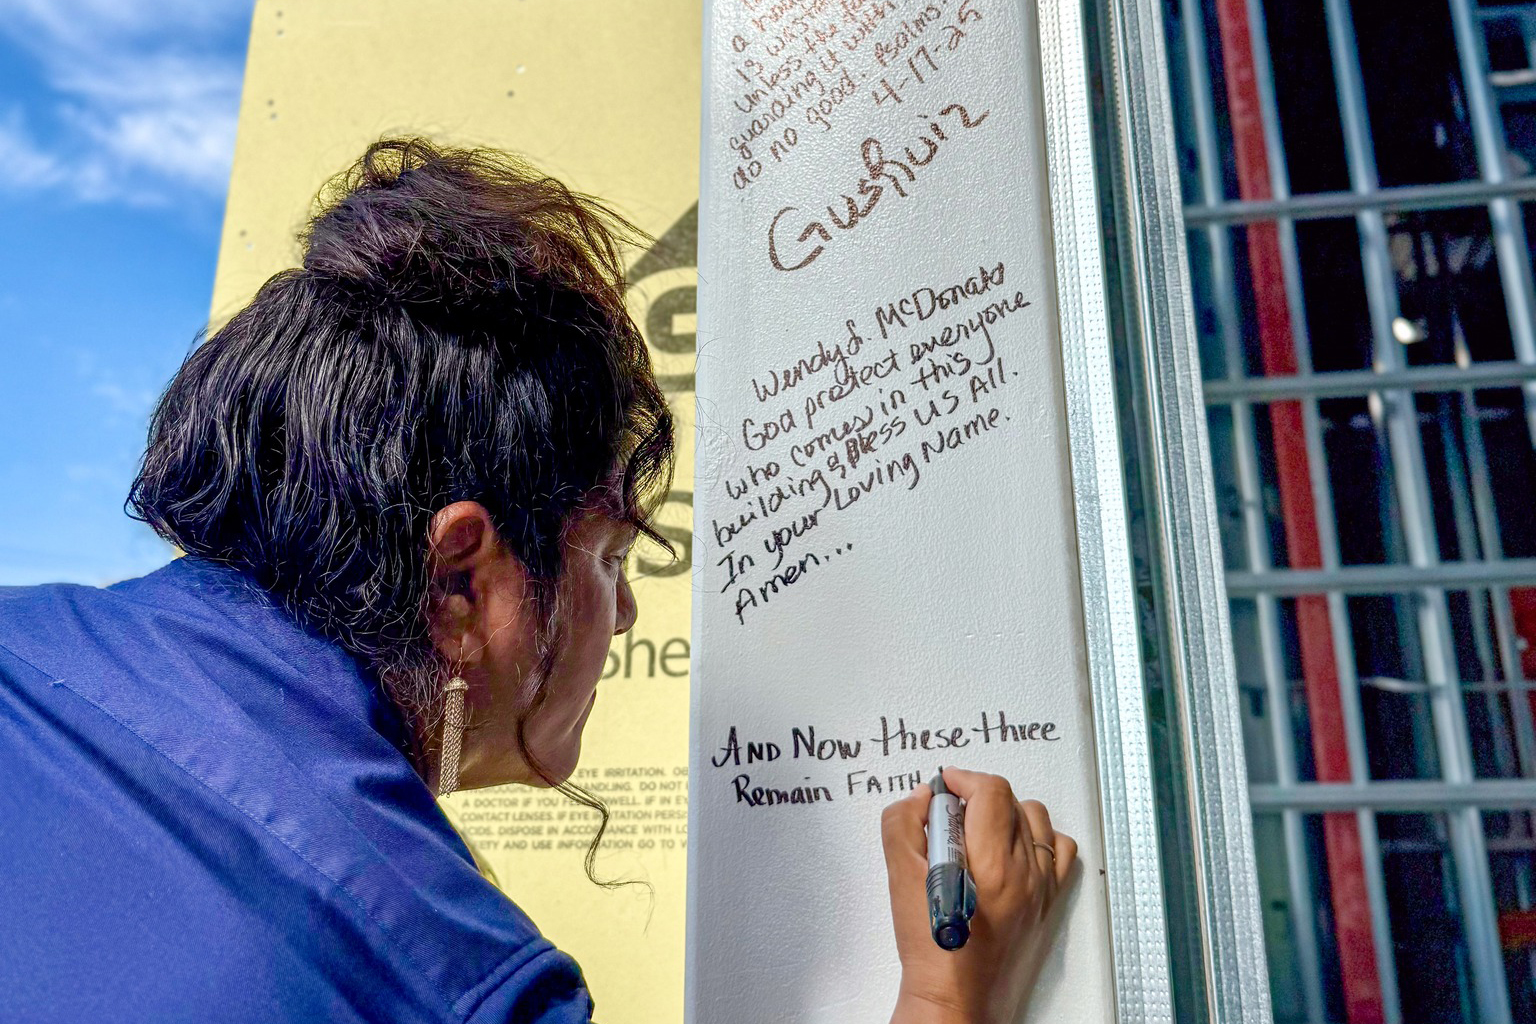 a
is wa
unless the
guarding it will
do no good. Psalms.
4-17-25
Gushuiz
Wendy L. McDonald
God protect everyone
who comes in this
building & Bless US All.
In your Loving Name.
Amen...
AND NOW these three
Remain FAITH
She
EYE IRRITATION.
ANDLING. DO NOT
A DOCTOR IF YOU FEEL UNWELL. IF IN
CONTACT LENSES. IF EYE IRRITATION
DISPOSE IN ACCORDANCE WITH
AND USE INFORMATION GO TO